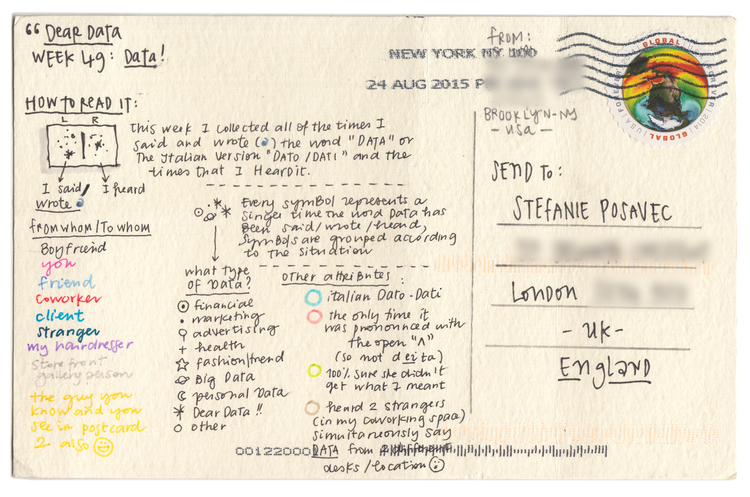 “ DEAR DATA
WEEK 49: DATA!
HOW TO READ IT:
L R
I said/ wrote
I heard
This week I collected all of the times I
said and wrote ( ) the word "DATA" or
The Italian version "DATO/DATI" and the
times that I Heard it.
Every symBol represents a
singer time the word Data has
Been said/wrote/heard,
symBols are grouped according
to the situation
from whom/To whom
Boyfriend
you
friend
coworker
client
stranger
my hairdresser
Store front
gallery person
the guy you
know and you
see in postcard
2 also
what type
of Data?
financial
marketing
advertising
health
fashion/trend
Big Data
personal Data
Dear Data !!
other
other attributes:
italian Dato-Dati
the only time it
was pronounced with
the open "Λ"
(so not deita)
100% sure she didn't
get what I meant
heard 2 strangers
(in my coworking space)
simultaneously say
DATA from 2 different
desks/location
NEW YORK NY 100
24 AUG 2015 P
001220000
FROM:
BROOKLYN-NY
- USA -
SEND TO:
STEFANIE POSAVEC
LONDON
- UK -
ENGLAND
GLOBAL
FOREVER 2014
GLOBAL
USA